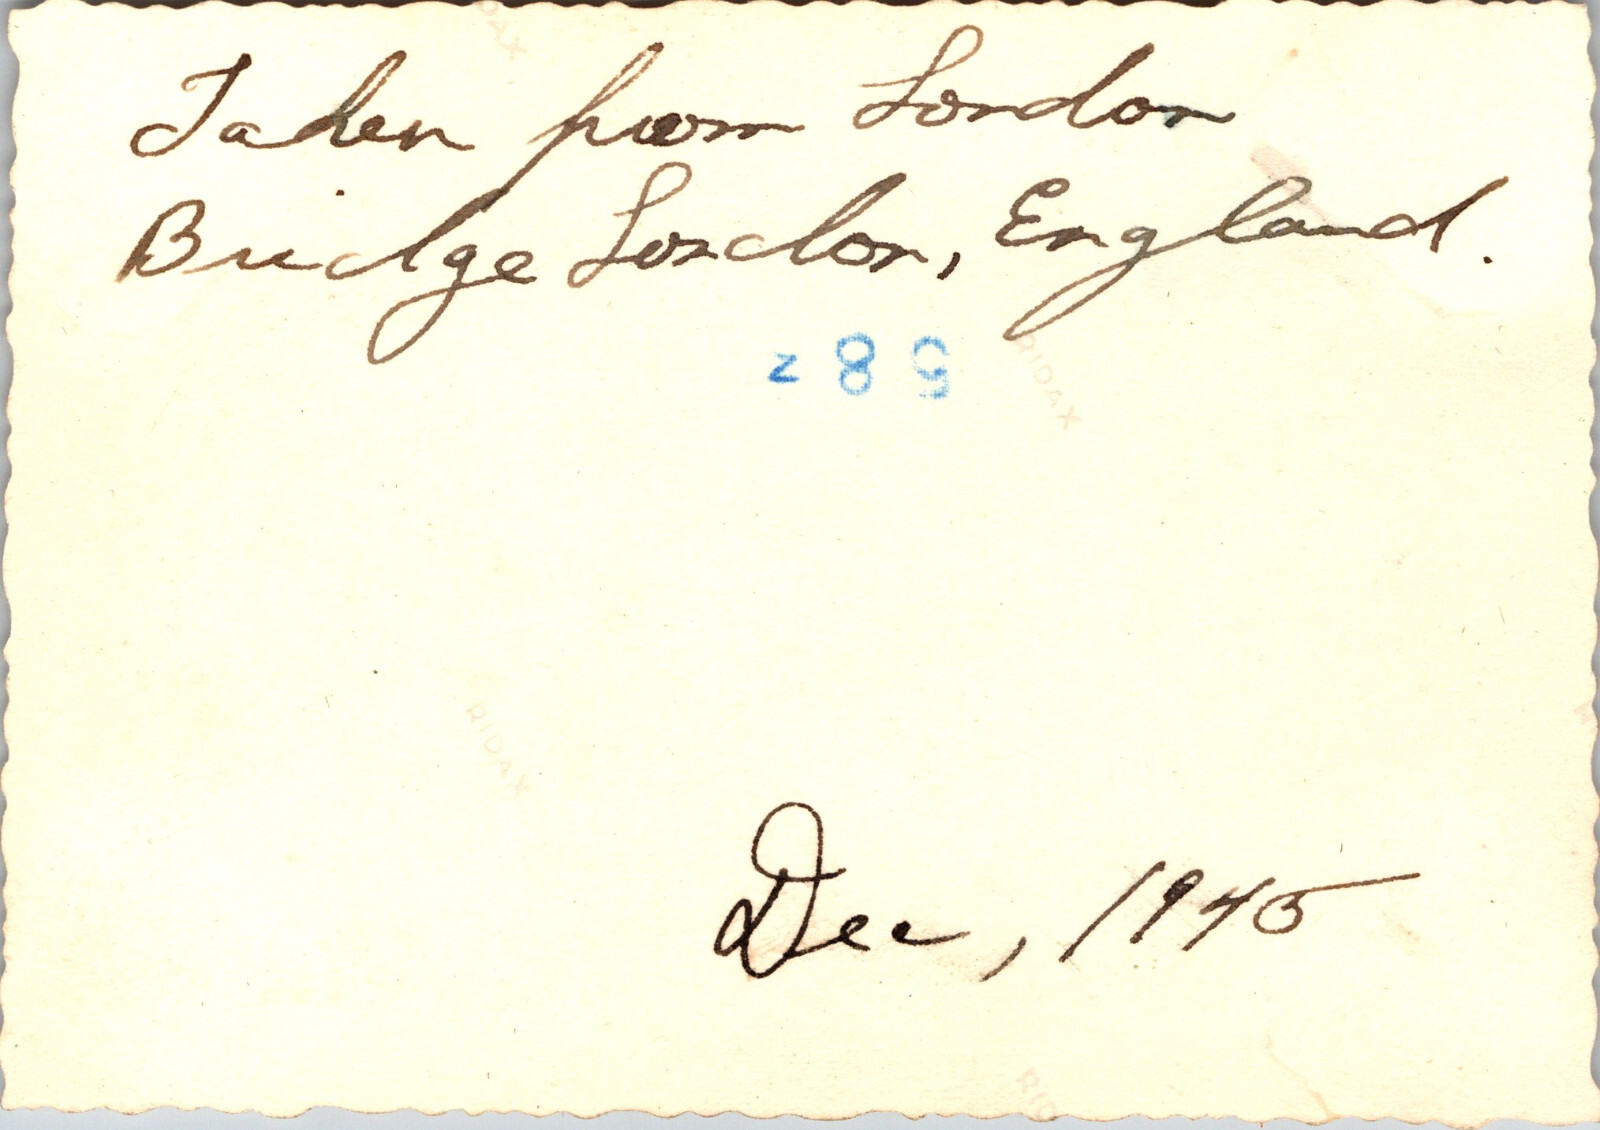 Taken from London
Bridge London, England.
582
RIDAX
RIDAX
Dec, 1945